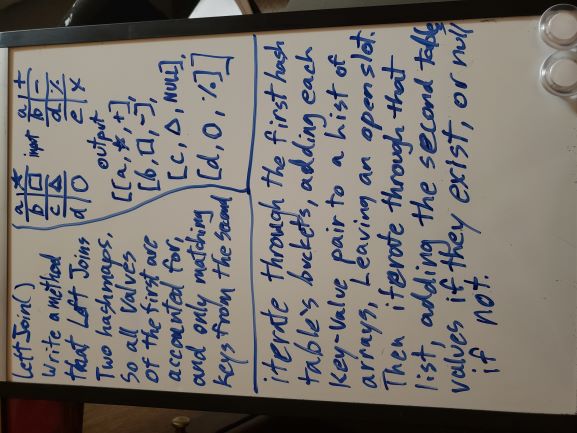 Left Join()
Write a method
that Left Joins
Two hashmaps,
So all Values
of the first are
accounted for,
and only matching
keys from the second
a | ☆
b | □
c | △
d | O
input
a | +
b | -
d | %
e | x
output
[[a, ☆, +],
[b, □, -],
[c, △, NULL],
[d, O, %]]
iterate through the first hash
table's buckets, adding each
key-value pair to a list of
arrays, Leaving an open slot.
Then iterate through that
list, adding the second table
values if they exist, or null
if not.